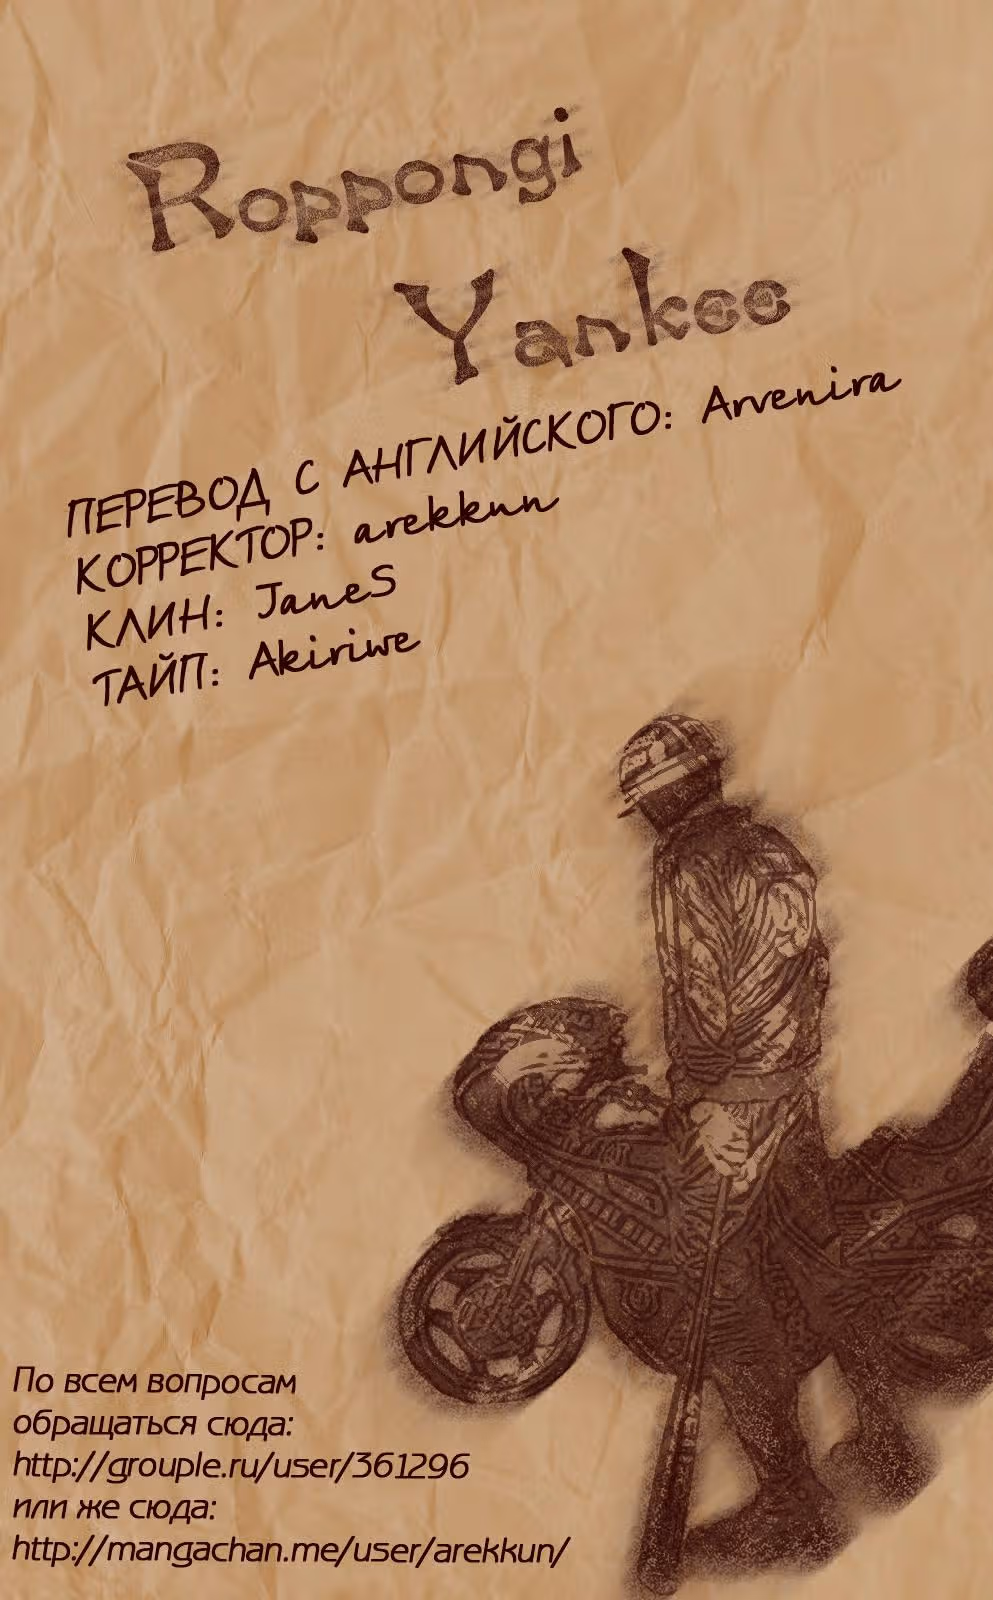 Roppongi
Yankee
ПЕРЕВОД С АНГЛИЙСКОГО: Arvenira
КОРРЕКТОР: arekkun
КЛИН: JaneS
ТАЙП: Akiriwe
По всем вопросам
обращаться сюда:
http://grouple.ru/user/361296
или же сюда:
http://mangachan.me/user/arekkun/